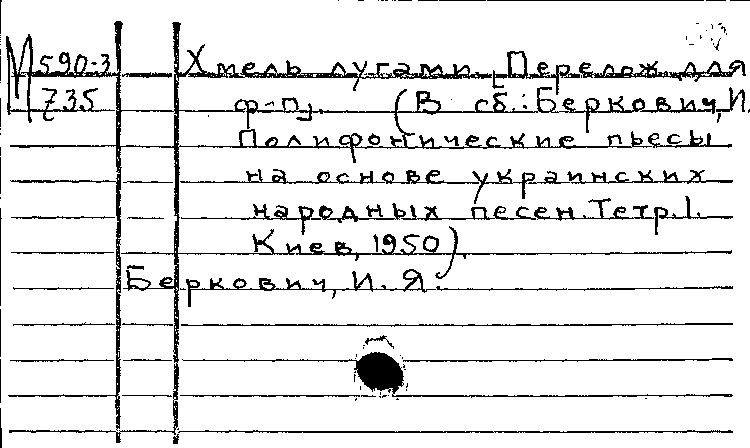 М 590-3 Хмель лугами. [Перелож. для
Z35 ф-п]. (В сб.: Беркович, И.
Полифонические пьесы
на основе украинских
народных песен. Тетр. 1.
Киев, 1950).
Беркович, И. Я.